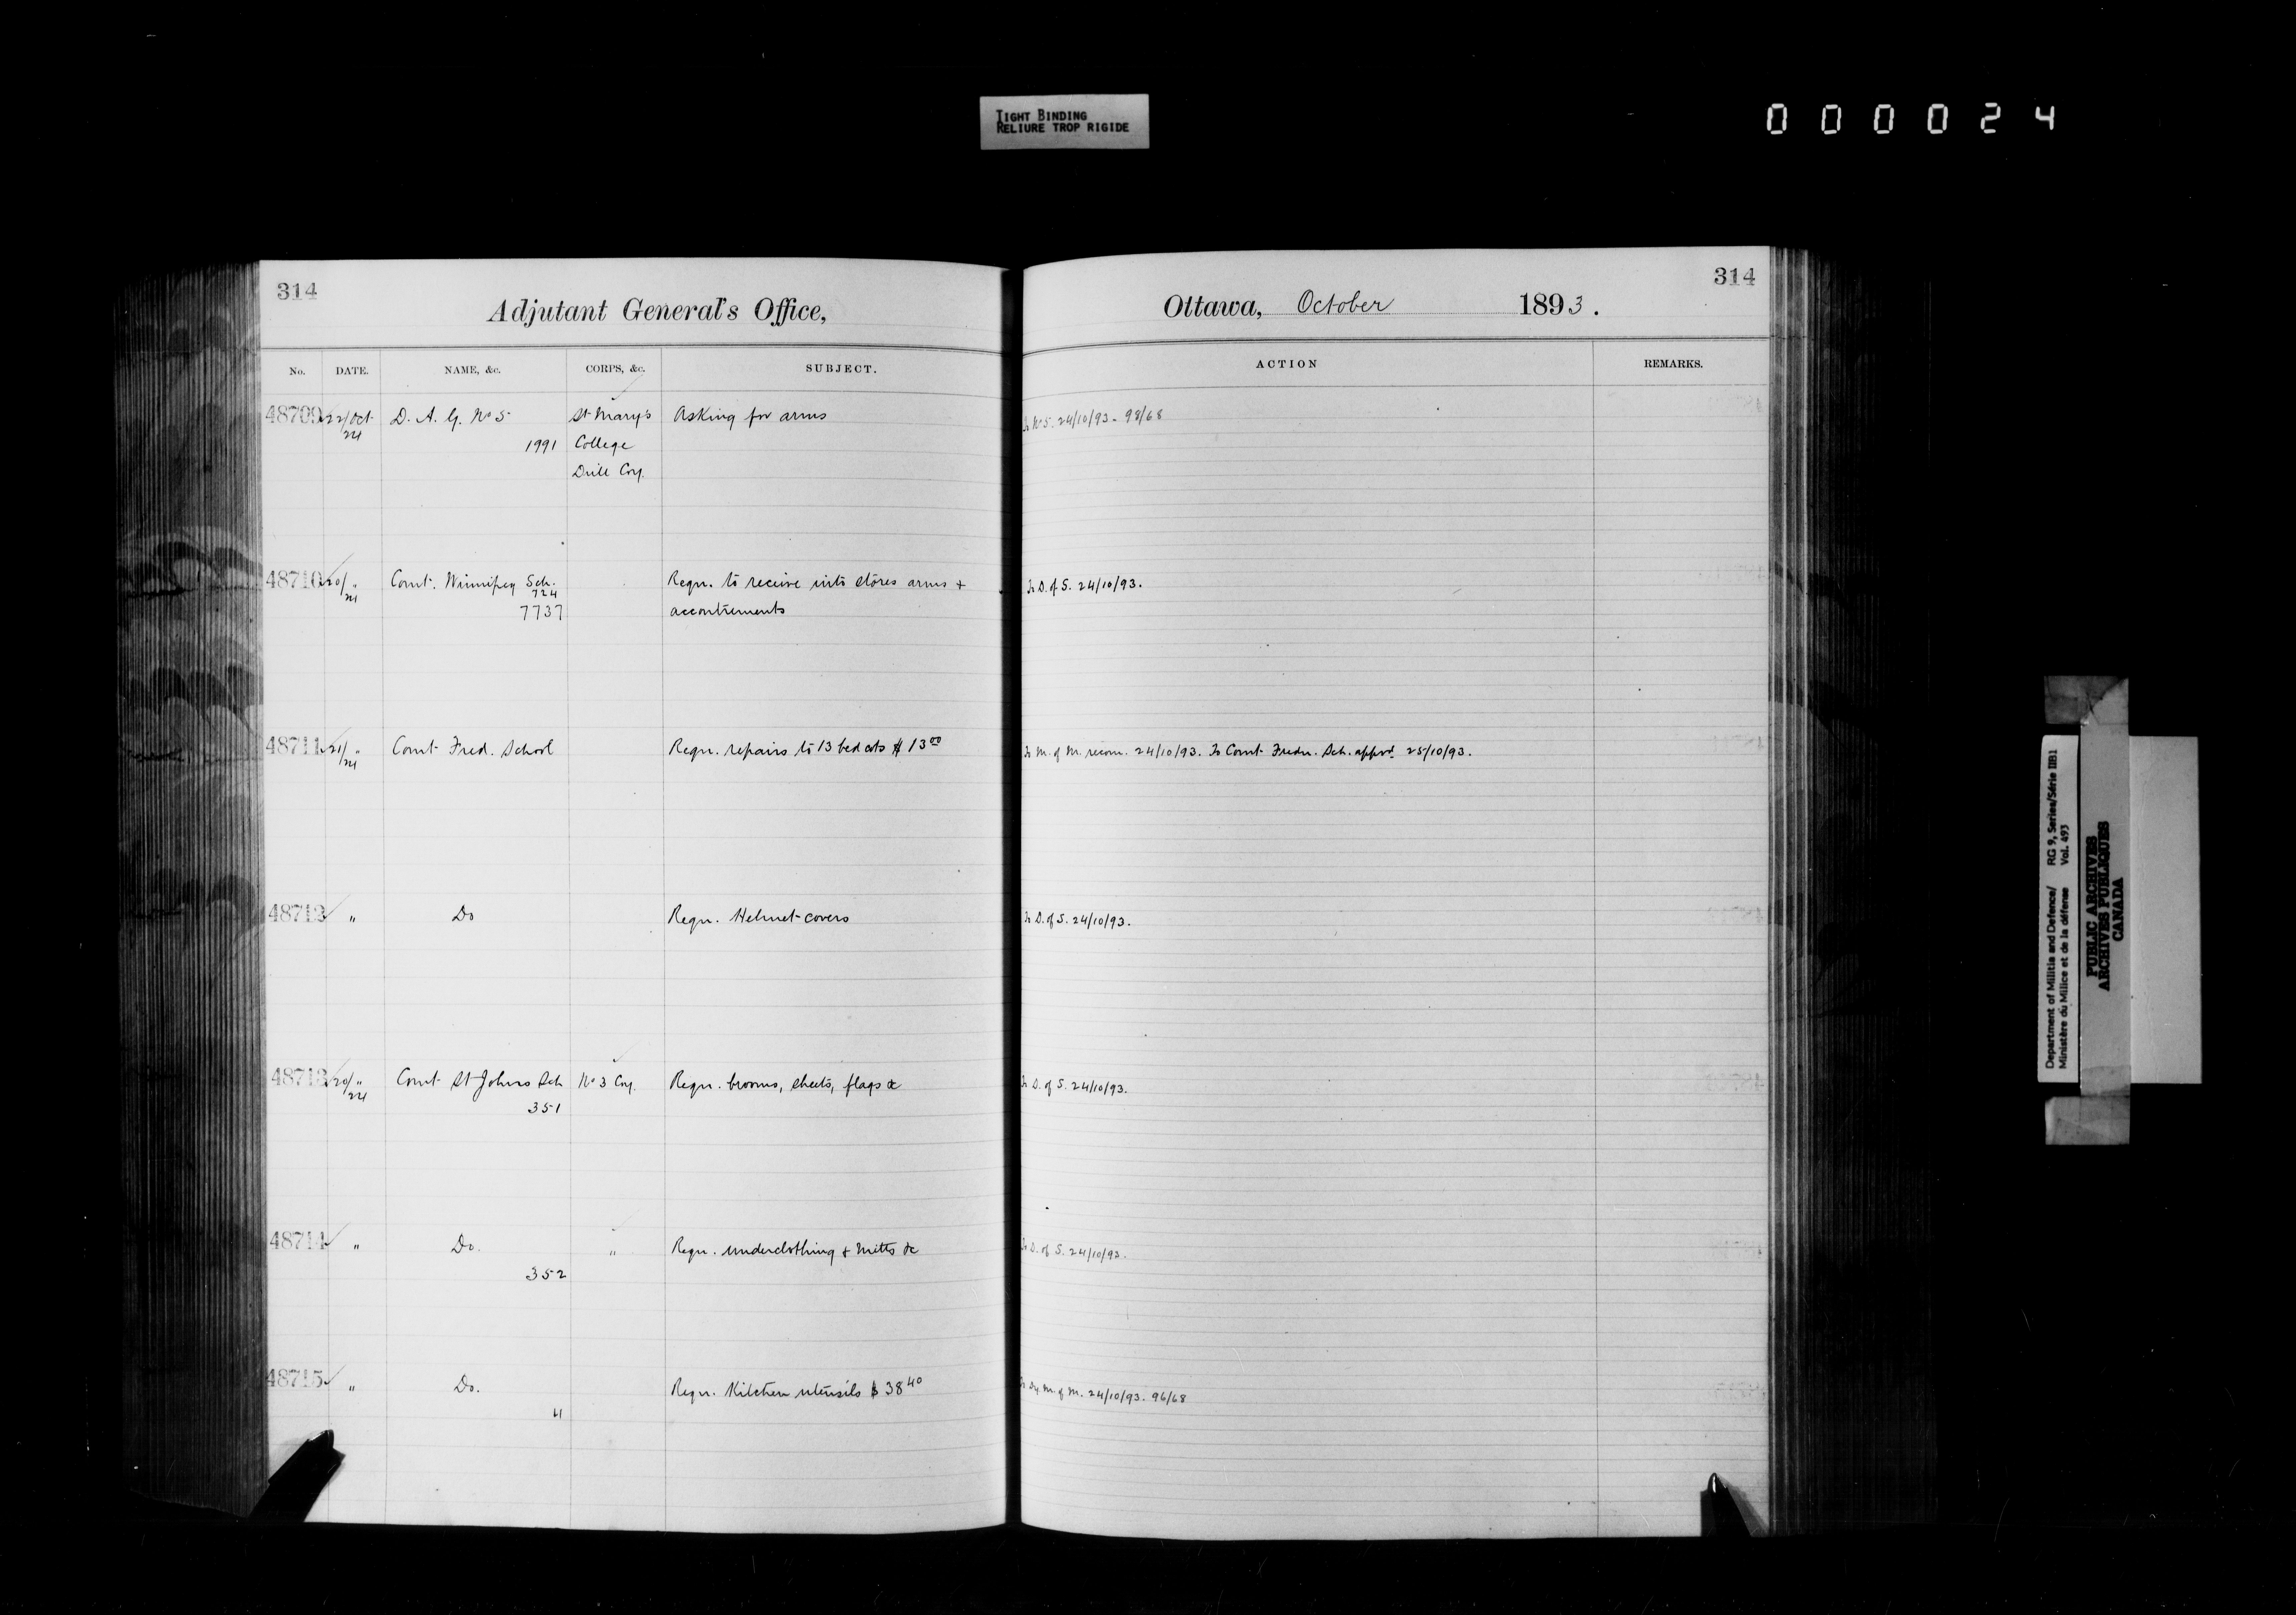 TIGHT BINDING
RELIURE TROP RIGIDE
000024
314
Adjutant General's Office,
No. DATE. NAME, &c. CORPS, &c. SUBJECT.
48709 22/Oct D. A. G. No 5 St Mary's Asking for arms
24 1991 College
Drill Coy.
48710 20/ " Comt. Winnipeg Sch. Reqn. to receive into stores arms +
24 724
7737 accoutrements
48711 21/ " Comt Fred. School Reqn. repairs to 13 bed cots $ 13 00
24
48712 " Do Reqn. Helmet covers
48713 20/ " Comt St Johns Sch No 3 Coy. Reqn. brooms, sheets, flags &
24 351
48714 " Do. " Reqn. underclothing + mitts &c
352
48715 " Do. Reqn. Kitchen utensils $ 38 40
4
314
Ottawa, October 1893.
ACTION REMARKS.
To No 5. 24/10/93 - 98/68
To D. of S. 24/10/93.
To M. of M. recom. 24/10/93. To Comt Fredn. Sch. apprvd. 25/10/93.
To D. of S. 24/10/93.
To D. of S. 24/10/93.
To D. of S. 24/10/93.
To Dy M. of M. 24/10/93. 96/68
Department of Militia and Defence/ RG 9, Series/Série IIB1
Ministère du Milice et de la défense Vol. 493
PUBLIC ARCHIVES
ARCHIVES PUBLIQUES
CANADA